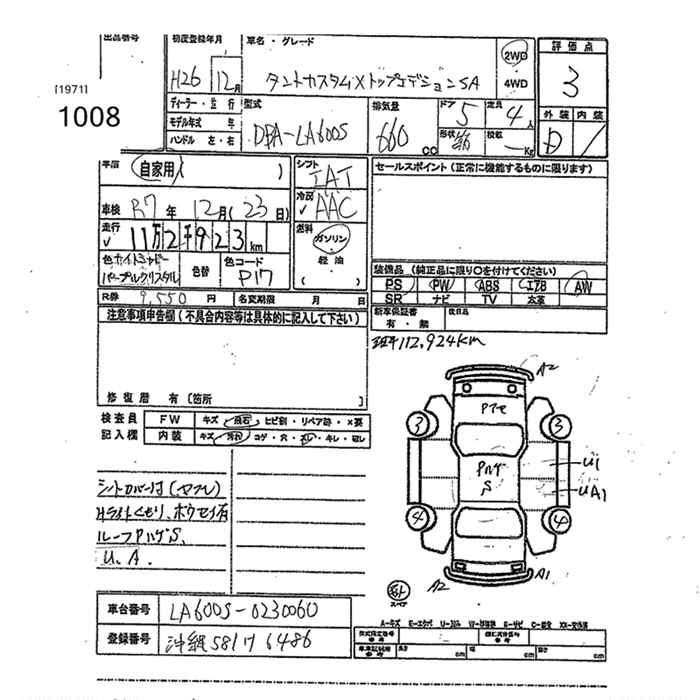 出品番号
[1971]
1008
初度登録年月
H26 12月
車名・グレード
タントカスタムXトップエディションSA
2WD
4WD
評価点
3
外装 内装
D
ディーラー・並行
モデル年式 年
ハンドル 左・右
型式
DBA-LA600S
排気量
660
CC
ドア
5
形状
箱
定員
4人
積載
Kg
車歴
自家用( )
シフト
IAT
冷房
AAC
燃料
ガソリン
軽油
( )
車検 R7年 12月(23日)
走行
11万2千923km
色 ホワイトシャドー
パープルクリスタル
色替
色コード
P17
R券 9,550円
名変期限 月 日
セールスポイント(正常に機能するものに限ります)
装備品(純正品に限り○を付けてください)
PS PW ABS エアB AW
SR ナビ TV 本革
新車保証書
有・無
後日品
注意事項申告欄(不具合内容等は具体的に記入して下さい)
修復歴 有〔箇所 〕
112,924km
検査員
記入欄
FW
キズ・飛石・ヒビ割・リペア跡・×要
内装
キズ・汚れ・コゲ・穴・スレ・キレ・
シートカバー付(ヤブレ)
Hライトくもり、ホウセイ有
ルーフPハゲS、
U、A.
A2
Pアセ
3
3
Pハゲ
S
U1
UA1
4
4
A2
A1
外
スペア
車台番号
LA600S-0230060
登録番号
沖縄 581 ワ 6486
A-キズ E-エクボ U-ヘコミ W-修理跡 S-サビ C-腐食 XX-交換済
長さ cm
幅 cm
高さ cm